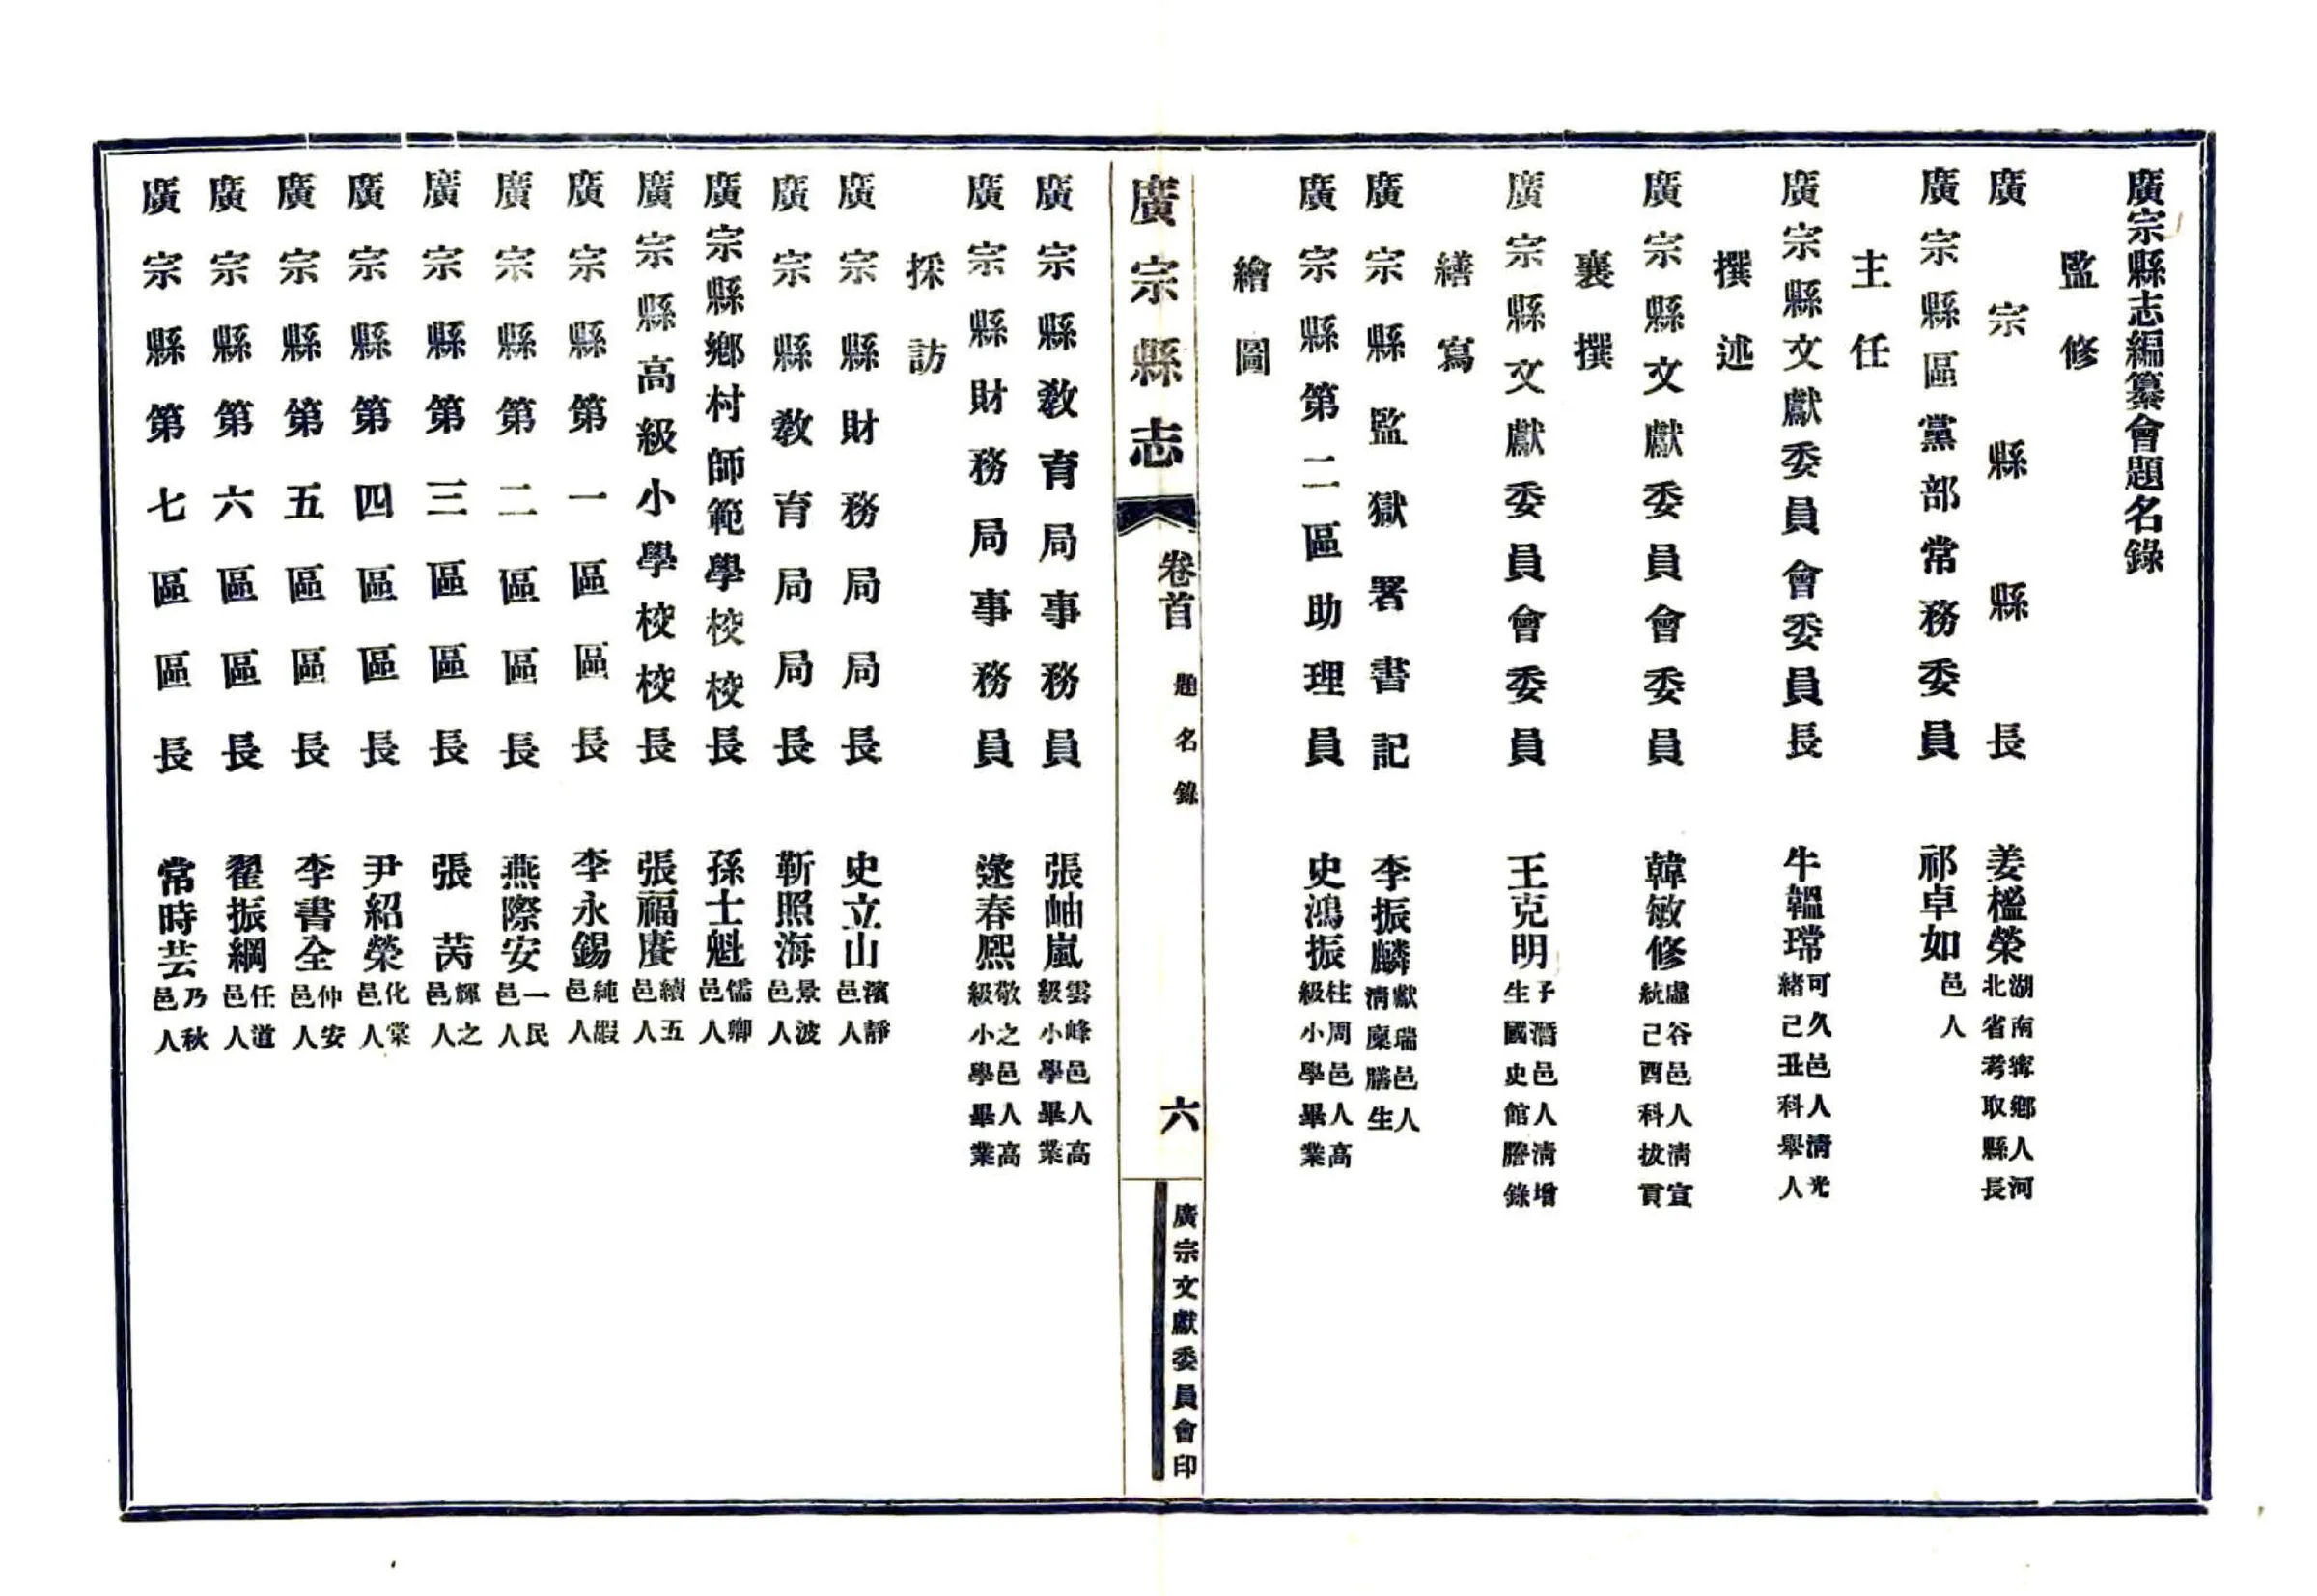 廣宗縣志編纂會題名錄
監修
廣宗縣縣長 姜榏榮 湖南寗鄉人河北省考取縣長
廣宗縣區黨部常務委員 祁卓如 邑人
主任
廣宗縣文獻委員會委員長 牛韞瑺 可久邑人清光緒己丑科舉人
撰述
廣宗縣文獻委員會委員 韓敏修 虛谷邑人清宣統己酉科拔貢
襄撰
廣宗縣文獻委員會委員 王克明 子潛邑人清增生國史館謄錄
繕寫
廣宗縣監獄署書記 李振麟 獻瑞邑人清廩膳生
廣宗縣第二區助理員 史鴻振 柱周邑人高級小學畢業
繪圖
廣宗縣志 卷首 題名錄 六 廣宗文獻委員會印
廣宗縣教育局事務員 張岫嵐 雲峰邑人高級小學畢業
廣宗縣財務局事務員 逯春熙 敬之邑人高級小學畢業
採訪
廣宗縣財務局局長 史立山 濱靜邑人
廣宗縣教育局局長 靳照海 景波邑人
廣宗縣鄉村師範學校校長 孫士魁 儒卿邑人
廣宗縣高級小學校校長 張福賡 續五邑人
廣宗縣第一區區長 李永錫 純嘏邑人
廣宗縣第二區區長 燕際安 一民邑人
廣宗縣第三區區長 張苪 輝之邑人
廣宗縣第四區區長 尹紹榮 化棠邑人
廣宗縣第五區區長 李書全 仲安邑人
廣宗縣第六區區長 翟振綱 任道邑人
廣宗縣第七區區長 常時芸 乃秋邑人